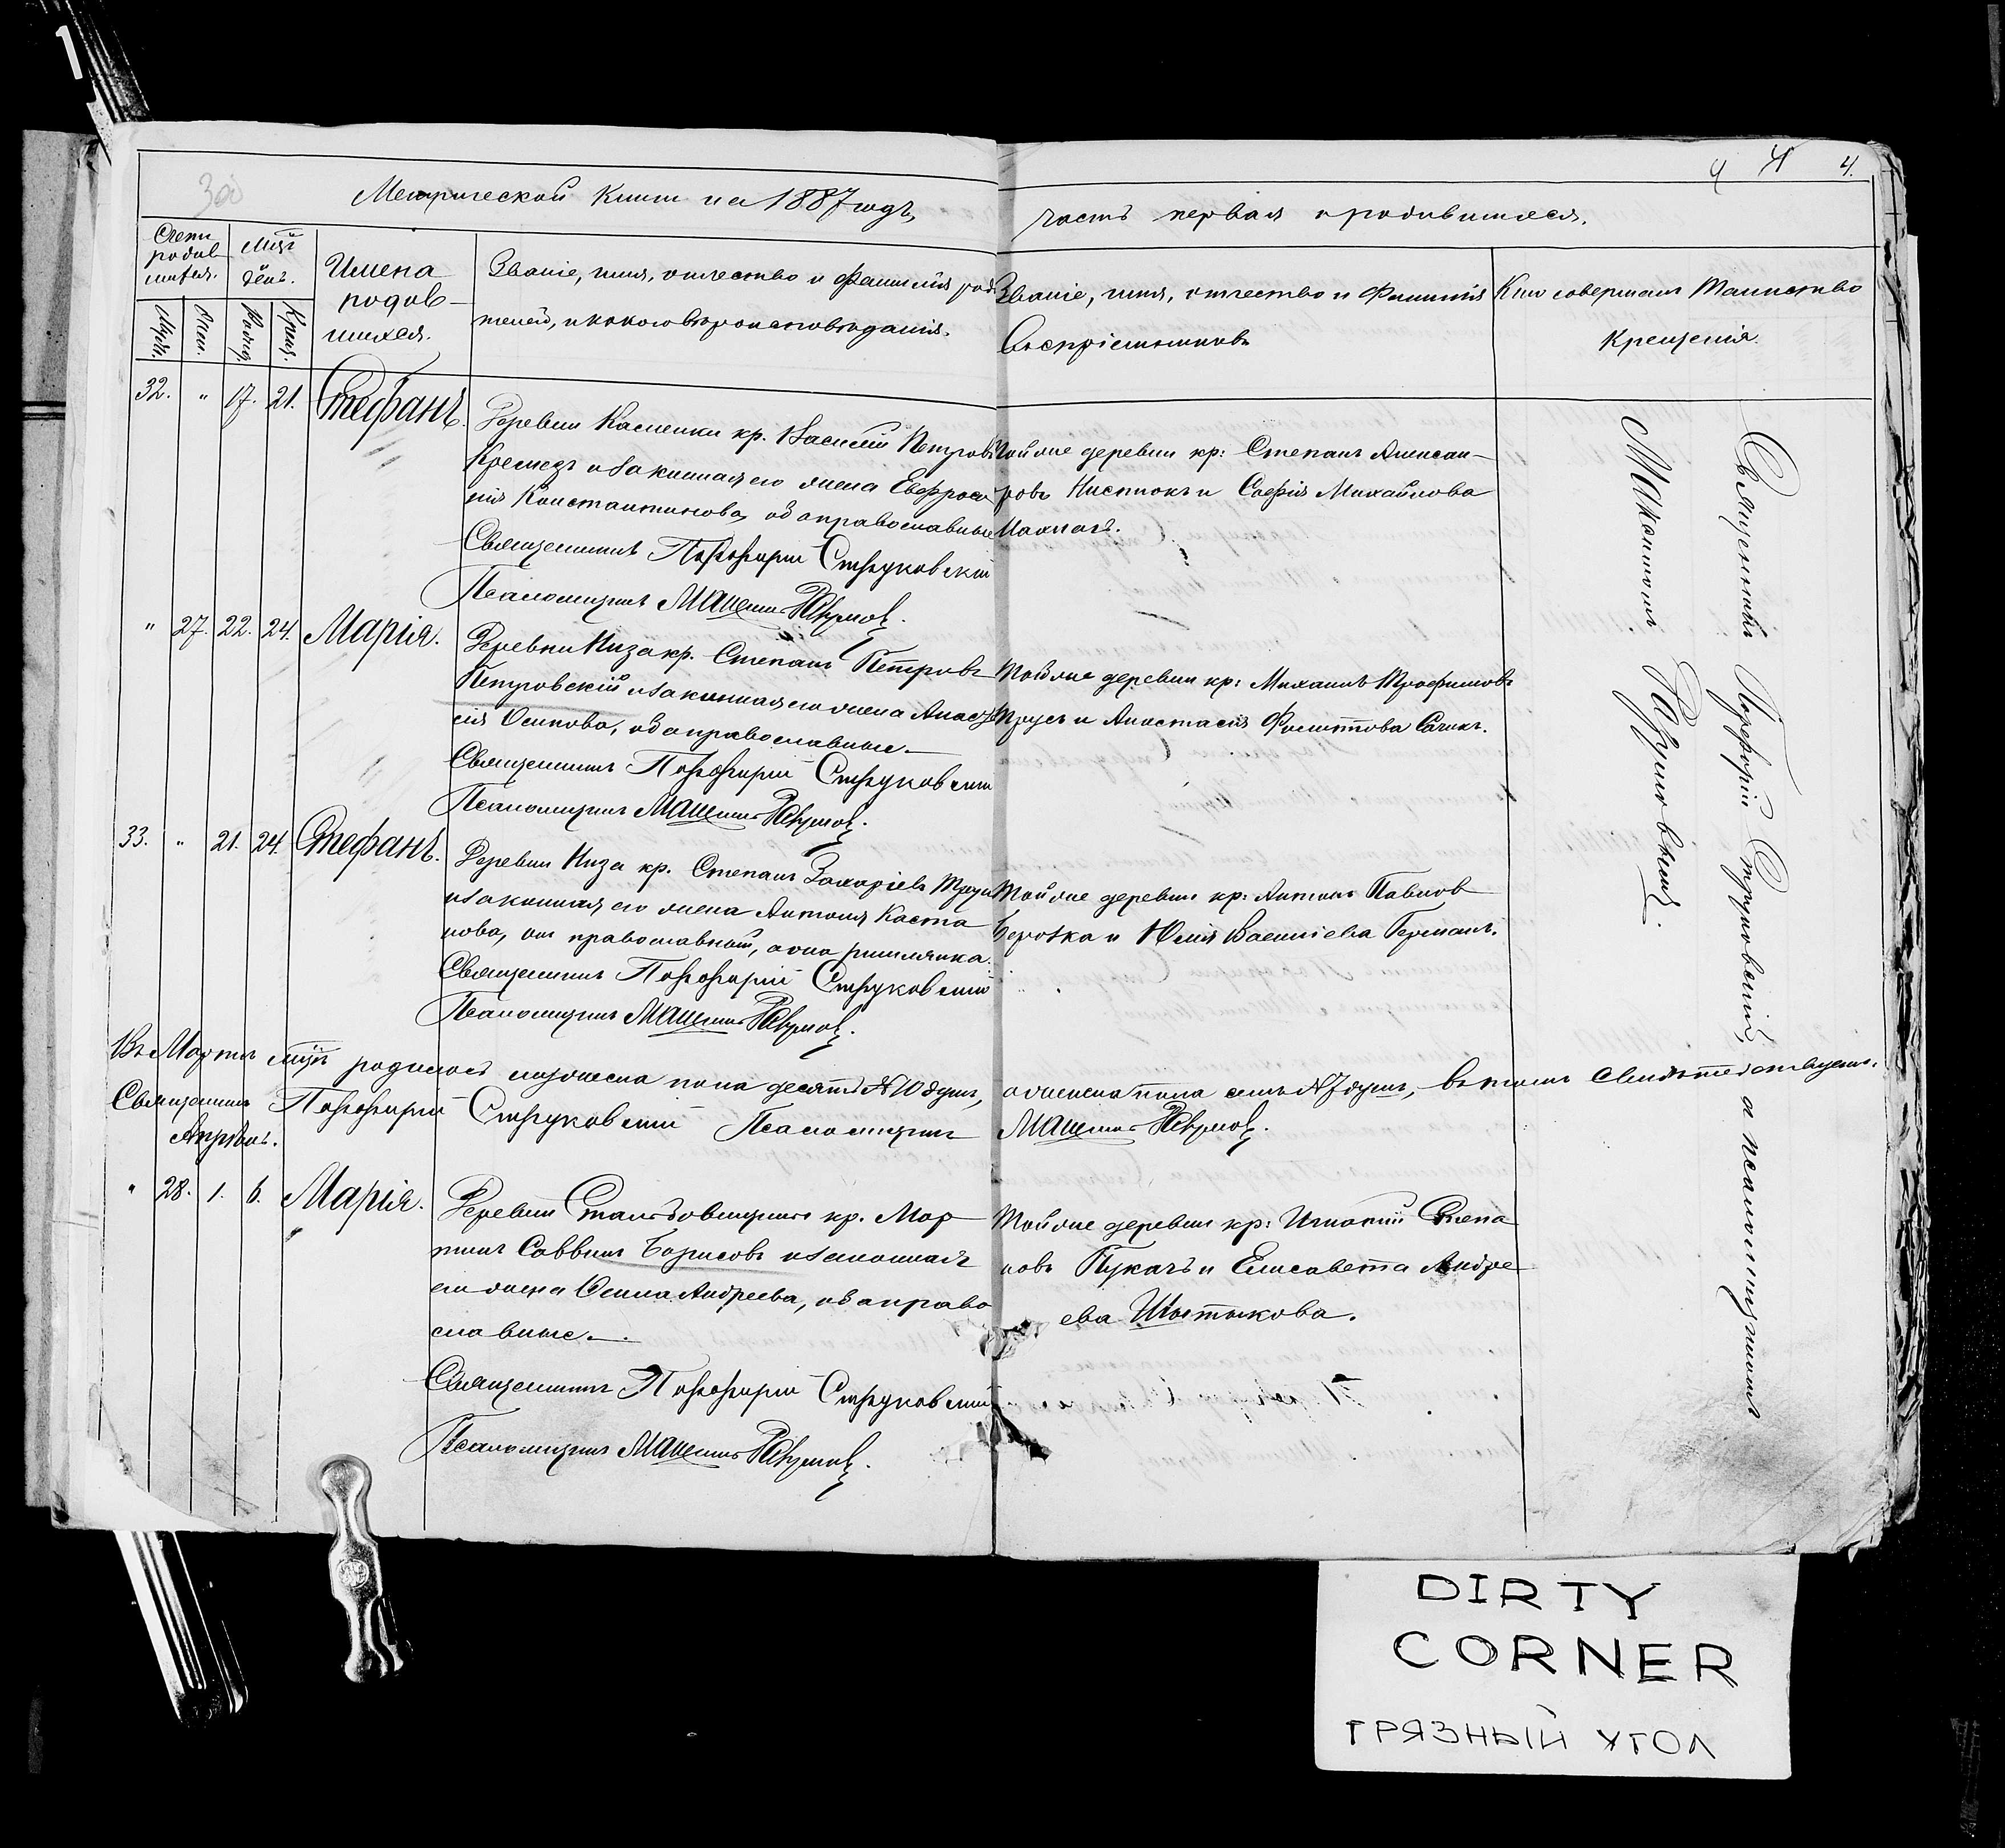 Метрической книги на 1887 годъ,
часть первая о родившихся.
4 4 4.
Счетъ родив-
шихся.
Мцъ и день.
Муж.
Жен.
Рожд.
Крещ.
Имена
родив-
шихся.
Званіе, имя, отчество и фамилія роди
телей, и какого вѣроисповѣданія.
Званіе, имя, отчество и фамилія
воспріемниковъ
Кто совершалъ таинство
крещенія.
32. " 17. 21. Стефанъ.
Деревни Каменки кр. Василій Петровъ
и законная его жена Евфроси
нія Константинова, оба православные
Священникъ Порфирій Струковскій
Псаломщикъ
Той же деревни кр: Степанъ Алексан-
ровъ и Софія Михайлова
" 27. 22. 24. Марія.
Деревни Низа кр. Степанъ Петровъ
Петровскій и законная его жена Анаста
сія Осипова, оба православные.
Священникъ Порфирій Струковскій
Псаломщикъ
Той же деревни кр: Михаилъ Трофимовъ
Трусъ и Анастасія Филиппова
33. " 21. 24. Стефанъ.
Деревни Низа кр. Степанъ Захаріевъ Трусъ
и законная его жена Антонія
нова, онъ православный, а она римлянка.
Священникъ Порфирій Струковскій
Псаломщикъ
Той же деревни кр: Антонъ Павлов
и Юлія Василіева Германъ.
Въ Мартѣ мцѣ родилось мужеска пола десять № 10 душъ,
а женска пола семь № 7 душъ, въ томъ свидѣтельствуемъ.
Священникъ Порфирій Струковскій Псаломщикъ
Апрѣль.
" 28. 1. 6. Марія.
Деревни кр. Мар
тинъ Саввинъ Борисовъ и законная
его жена Андреева, оба право
славные.
Священникъ Порфирій Струковскій
Псаломщикъ
Той же деревни кр: Игнатій Степа
новъ Пукачъ и Елисавета Андре
ева
Священникъ Порфирій Струковскій, а псаломщикъ
DIRTY
CORNER
ГРЯЗНЫЙ УГОЛ